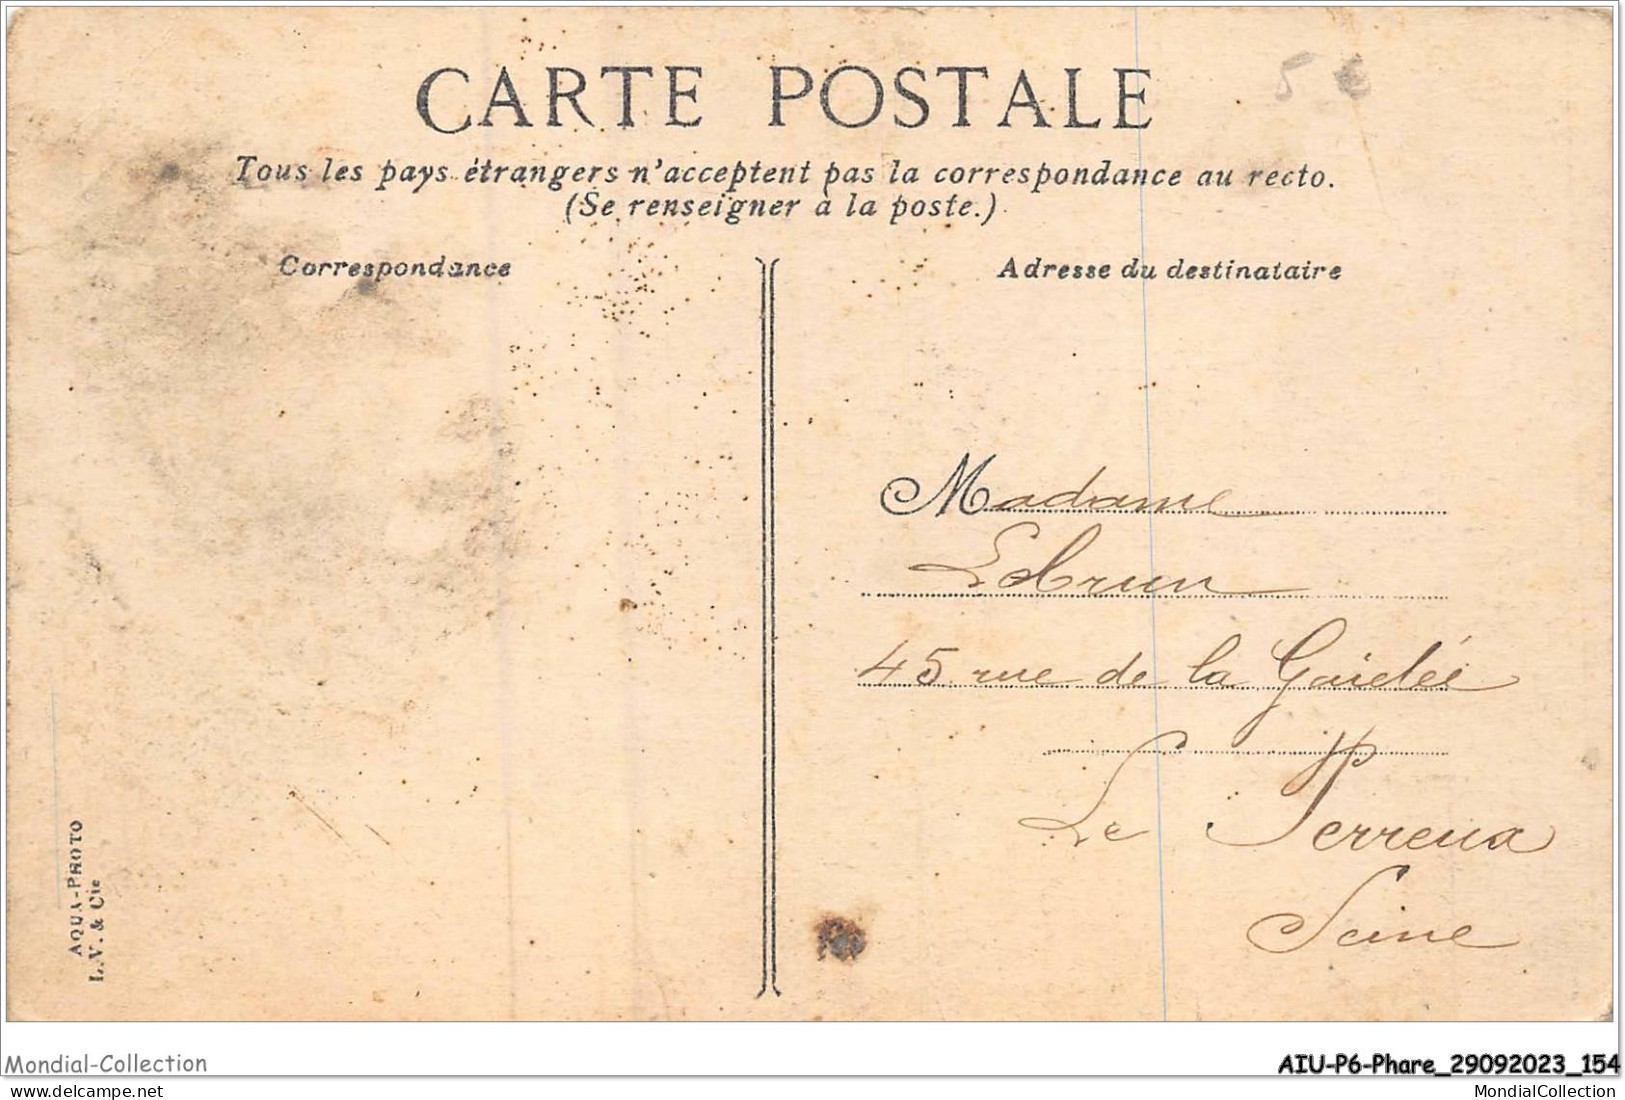 CARTE POSTALE
5 €
Tous les pays étrangers n'acceptent pas la correspondance au recto.
(Se renseigner à la poste.)
Correspondance
Adresse du destinataire
Madame
Lebrun
45 rue de la Gaieléé
Le Perreux
Seine
AQUA-PHOTO
L.V. & Cie
Mondial-Collection
AIU-P6-Phare_29092023_154
delcampe.net
MondialCollection